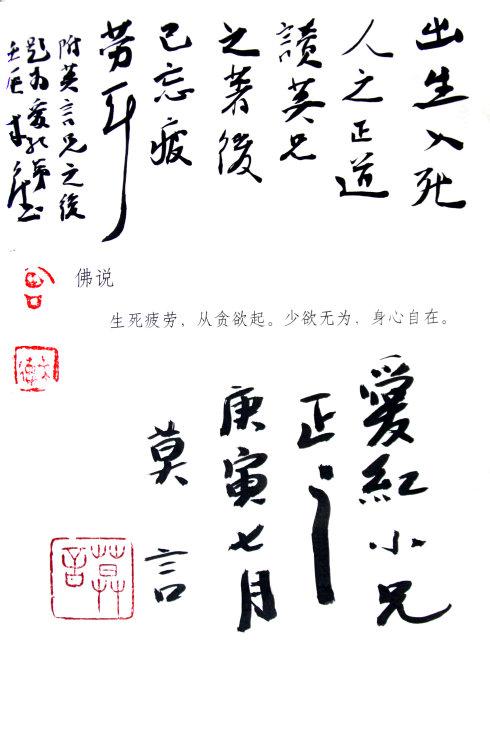 出生入死
人之正道
讀莫兄
之著後
已忘疲
劳耳
附莫言兄之後
题为爱红弟
壬辰
佛说
生死疲劳，从贪欲起。少欲无为，身心自在。
愛紅小兄
正之
庚寅七月
莫言
莫言